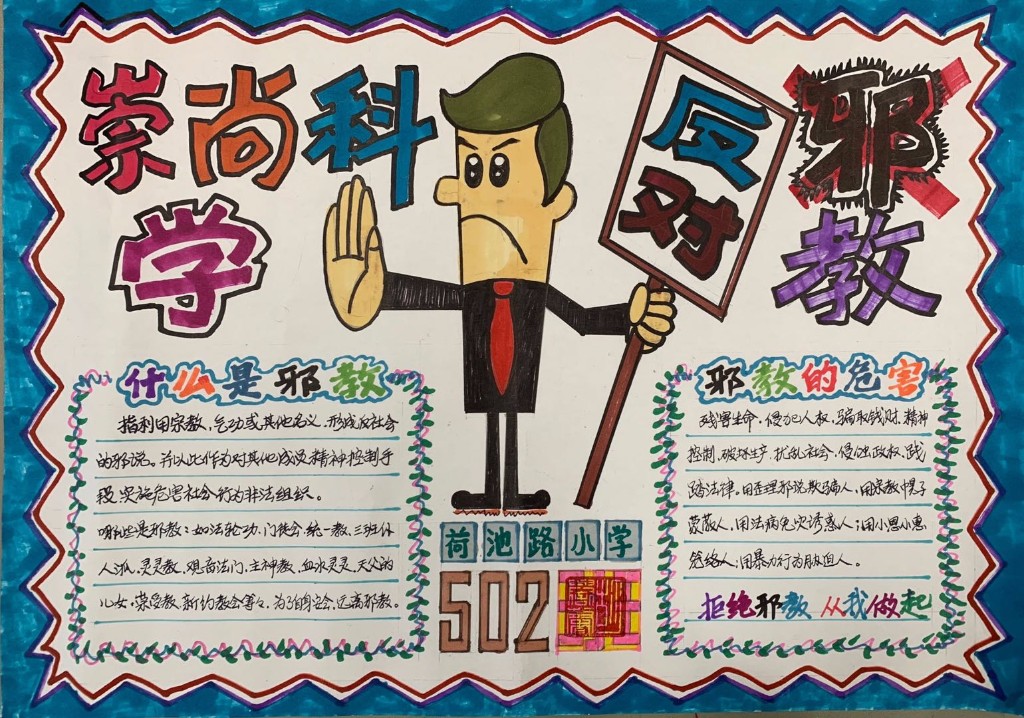 崇尚科
学
反
对
邪
教
什么是邪教
指利用宗教、气功或其他名义、形成反社会
的邪说。并以此作为对其他成员精神控制手
段实施危害社会行为非法组织。
哪些是邪教:如法轮功、门徒会、统一教、三班仆
人派、灵灵教、观音法门、主神教、血水灵灵、天父的
儿女、荣受教、新约教会等等、为了自身安全、远离邪教。
邪教的危害
残害生命、侵犯人权、骗取钱财、精神
控制、破坏生产、扰乱社会、侵蚀政权、践
踏法律。用歪理邪说欺骗人、用宗教帽子
蒙蔽人、用法病免灾诱惑人;用小恩小惠
笼络人;用暴力行为胁迫人。
拒绝邪教 从我做起
荷池路小学
502